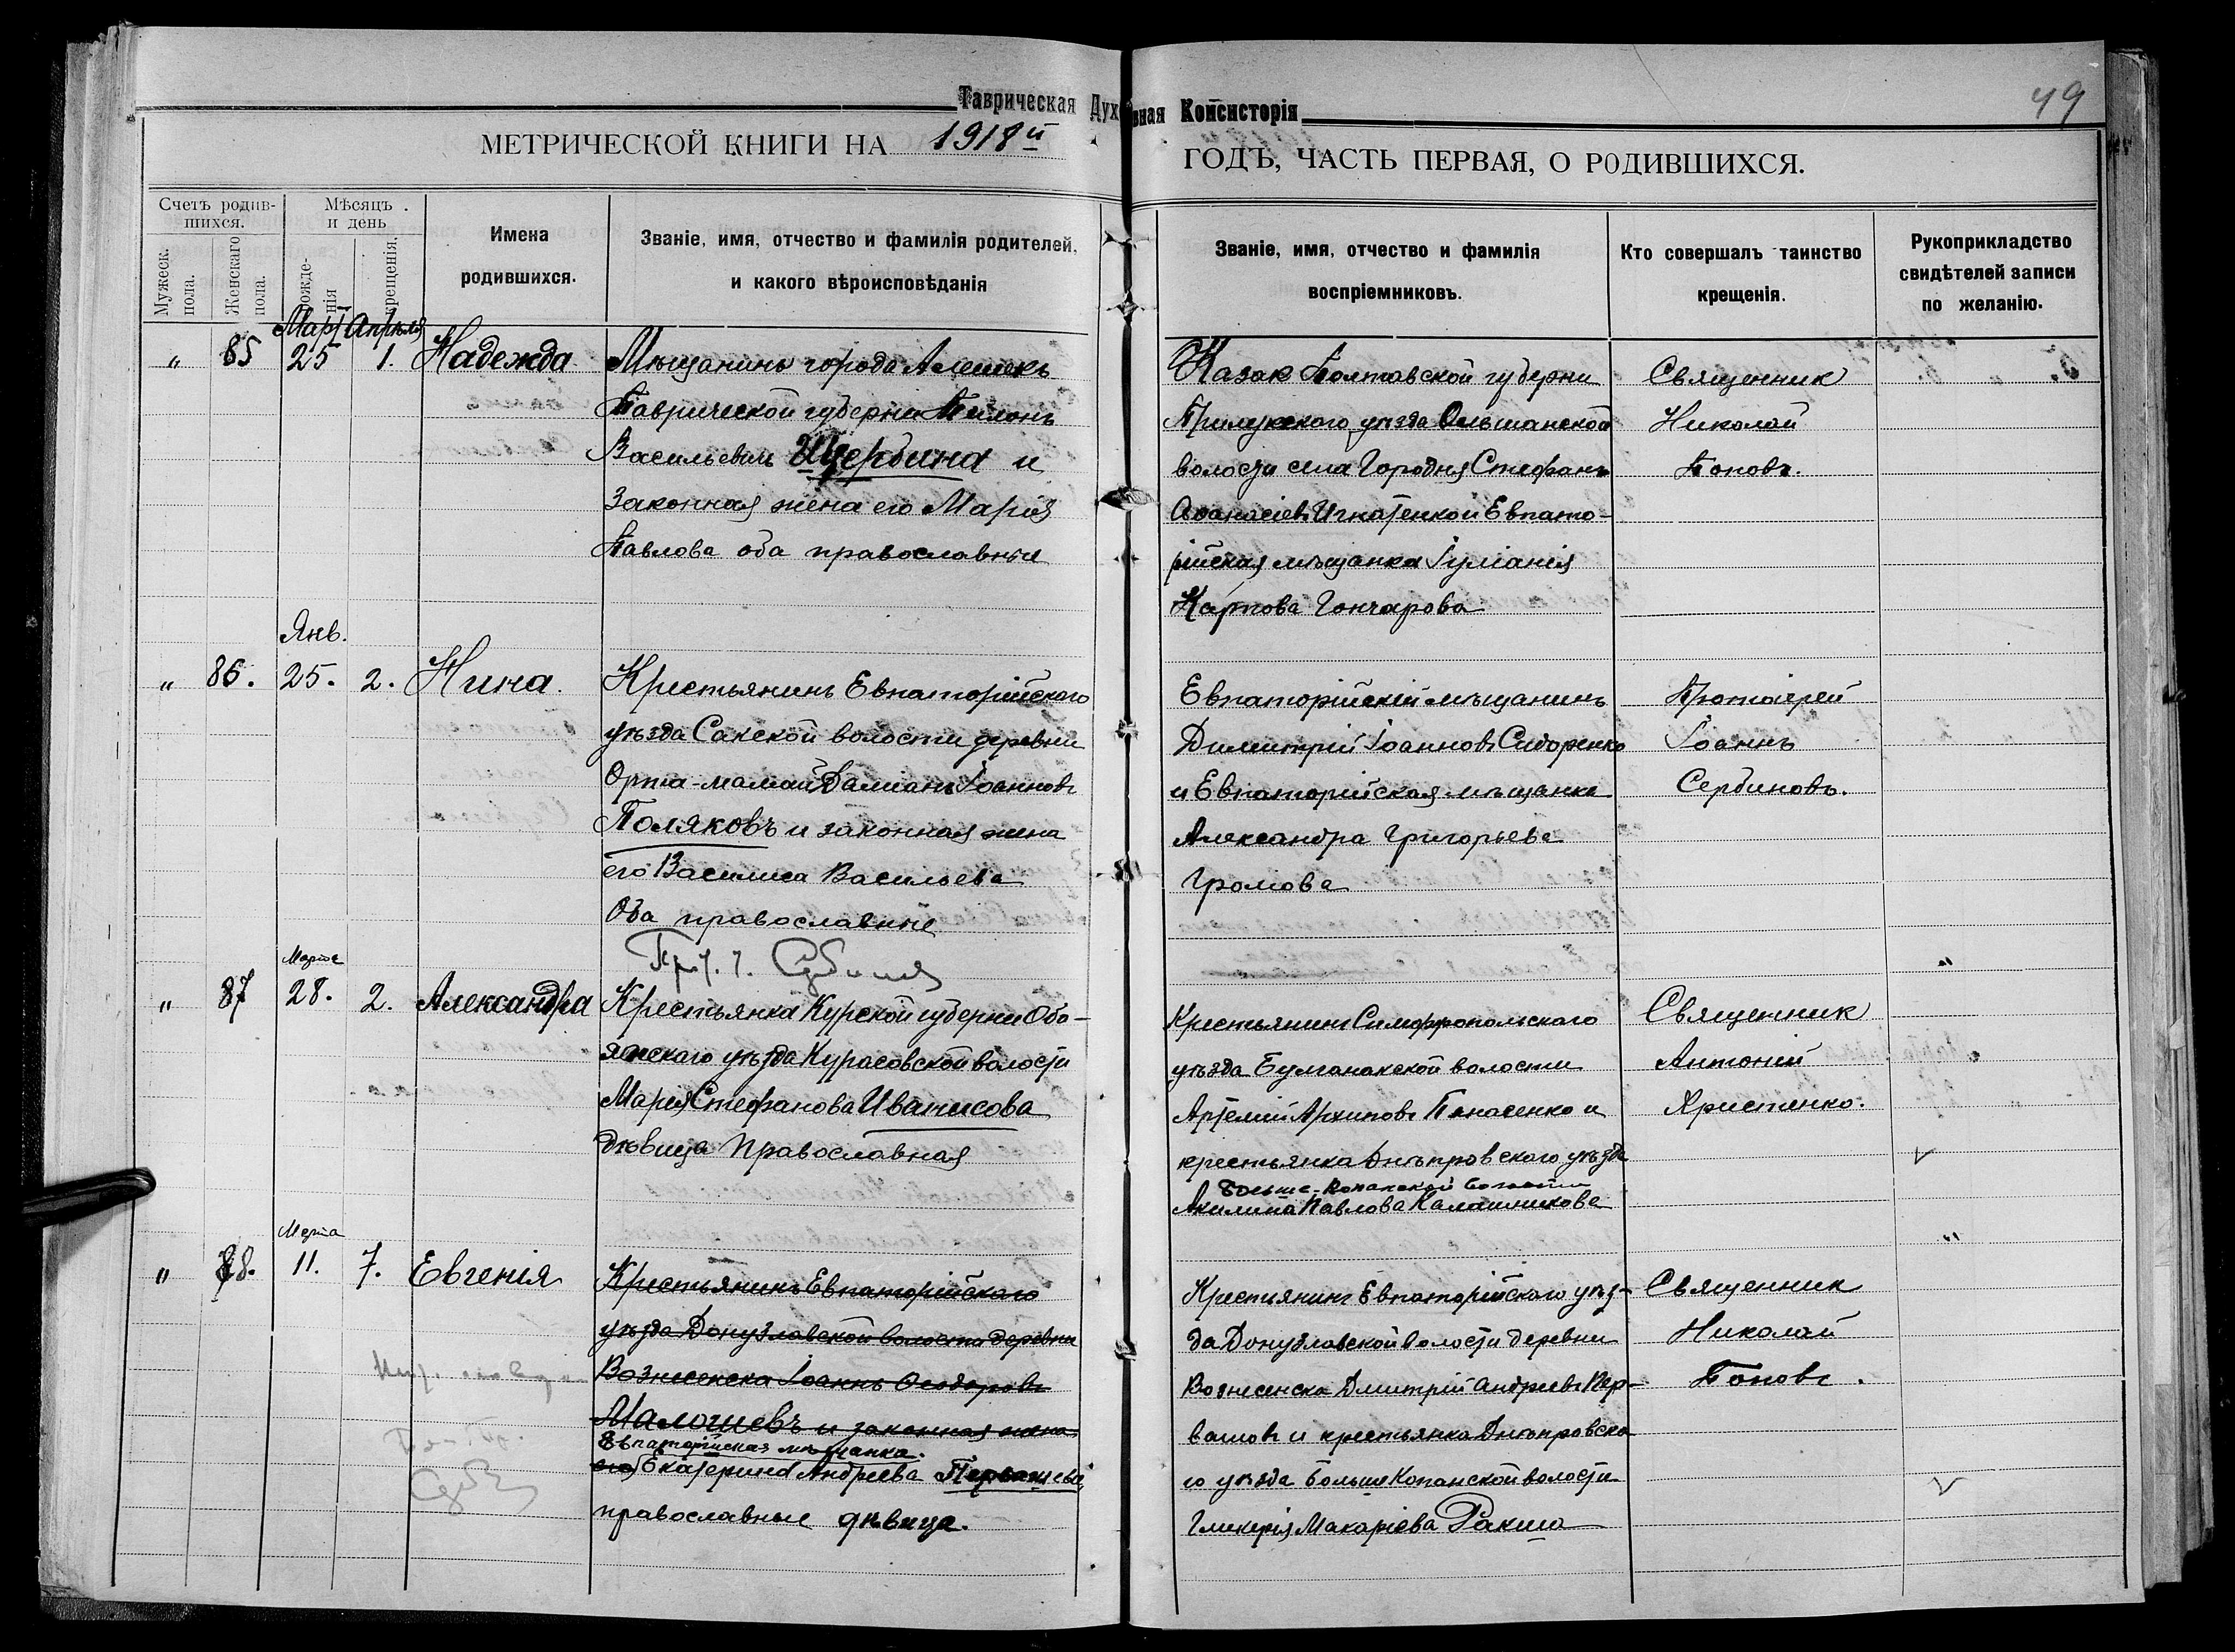 Таврическая Духовная Консисторія
49
МЕТРИЧЕСКОЙ КНИГИ НА 1918й ГОДЪ, ЧАСТЬ ПЕРВАЯ, О РОДИВШИХСЯ.
Счетъ родив-
шихся.
Мужеск.
пола.
Женскаго
пола.
Мѣсяцъ
и день
рожде-
нія
крещенія.
Имена
родившихся.
Званіе, имя, отчество и фамилія родителей,
и какого вѣроисповѣданія
Званіе, имя, отчество и фамилія
воспріемниковъ.
Кто совершалъ таинство
крещенія.
Рукоприкладство
свидѣтелей записи
по желанію.
Март Апрѣля
" 85 25 1. Надежда
Мѣщанинъ города Алешекъ
Таврической губерни
Васильевъ Щербина и
законная жена его Марія
Павлова оба православные
Казак Полтавской губерни
Прилукского уѣзда Ольшанской
волости села Городня Стефанъ
Аѳанасіевъ Игнатенко и Евпато-
рійская мѣщанка Іуліанія
Карпова Гончарова
Священник
Николай
Поповъ.
Янв.
" 86. 25. 2. Нина.
Крестьянинъ Евпаторійскаго
уѣзда Сакской волости деревни
Орта-мамай Даміанъ Іоанновъ
Поляковъ и законная жена
его Василиса Васильева
Оба православные
Димитрій Іоанновъ Сидоренко
Евпаторійскій мѣщанинъ
и Евпаторійская мѣщанка
Александра Григорьева
Громова
Протоіерей
Іоаннъ
Сербиновъ.
Марта
" 87 28. 2. Александра
Крестьянка Курской губерни Обо-
янскаго уѣзда Курасовской волости
Марія Стефанова Иванисова
дѣвица Православная
Крестьянинъ Симферопольскаго
уѣзда Булганакской волости
Артемій Архиповъ Панасенко и
крестьянка Днѣпровского уѣзда
Больше-Копанской волости
Акилина Павлова Калашникова
Священник
Антоній
Христенко.
Марта
" 88. 11. 7. Евгенія
Крестьянинъ Евпаторійскаго
уѣзда Донузлавской волости деревни
Вознесенска Іоаннъ Ѳеодоровъ
и законная жена
Евпаторійская мѣщанка.
его Екатерина Андреева Первашева
православные дѣвица.
Крестьянинъ Евпаторійского уѣз-
да Донузлавской волости деревни
Вознесенска Дмитрій Андреевъ Пер-
вашовъ и крестьянка Днѣпровско
го уѣзда Больше Копанской волости
Гликерія Макаріева Ракша
Священник
Николай
Поповъ.